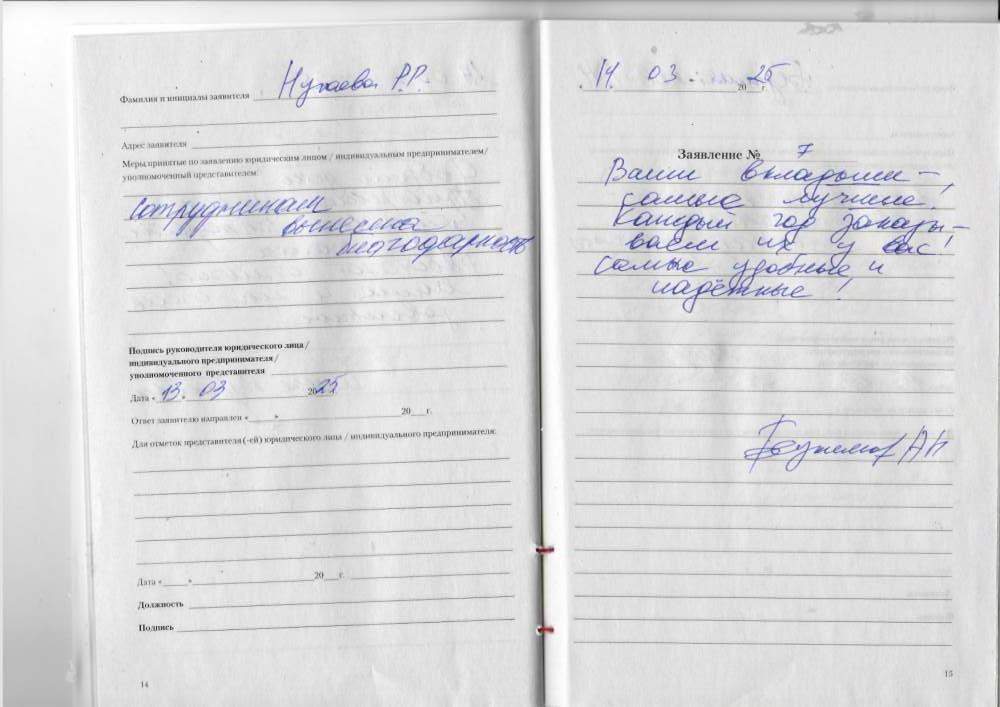 Фамилия и инициалы заявителя Нугаева Р.Р.
Адрес заявителя
Меры принятые по заявлению юридическим лицом / индивидуальным предпринимателем/
уполномоченный представителем:
сотрудникам
вынесена
благодарность
Подпись руководителя юридического лица/
индивидуального предпринимателя/
уполномоченного представителя
Дата «13» 03 2025
Ответ заявителю направлен «____»____ 20__г.
Для отметок представителя (-ей) юридического лица / индивидуального предпринимателя:
Дата «____»____ 20__г.
Должность
Подпись
14
14. 03. 2025г.
Заявление № 7
Ваши вкладыши –
самые лучшие!
Каждый год заказы–
ваем их у вас!
самые удобные и
надёжные!
15